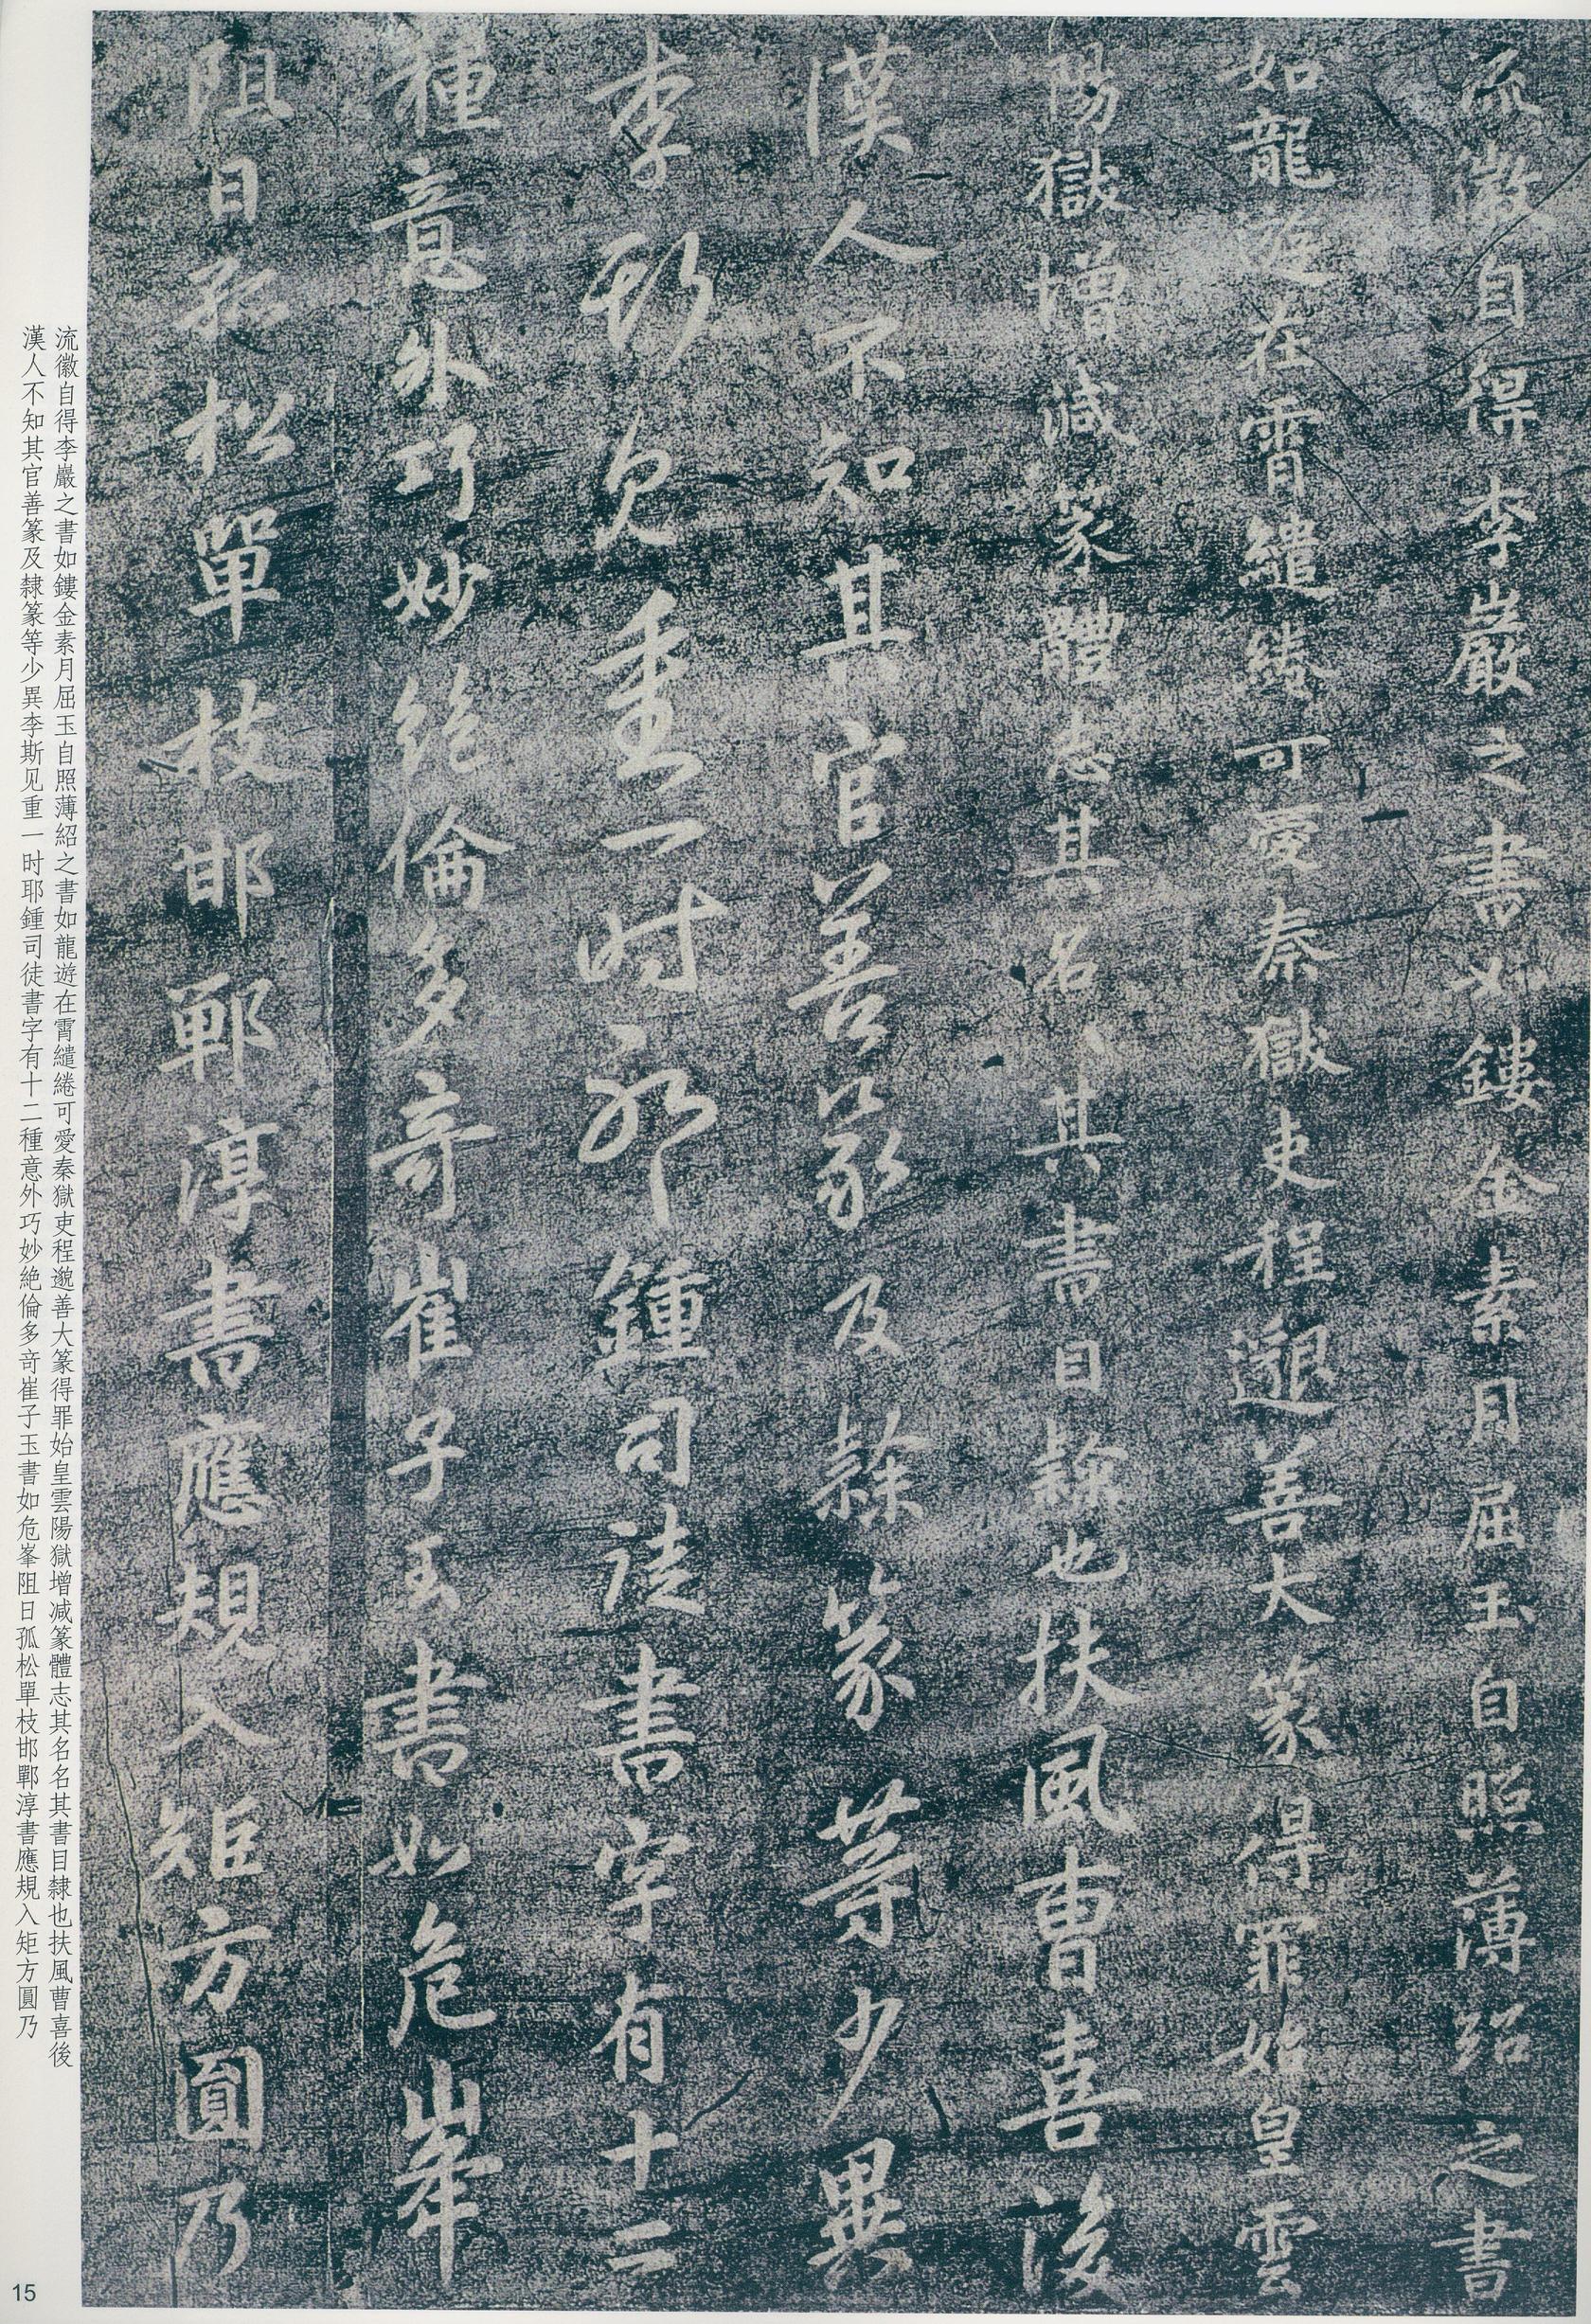 流徽自得李巖之書如鏤金素月屈玉自照薄紹之書
如龍遊在霄繾綣可愛秦獄吏程邈善大篆得罪始皇雲
陽獄增減篆體志其名〻其書目隸也扶風曹喜後
漢人不知其官善篆及隸篆等少異
李斯见重一时耶鍾司徒書字有十二
種意外巧妙絶倫多奇崔子玉書如危峯
阻日孤松單枝邯鄲淳書應規入矩方圓乃
流徽自得李巖之書如鏤金素月屈玉自照薄紹之書如龍遊在霄繾綣可愛秦獄吏程邈善大篆得罪始皇雲陽獄增減篆體志其名名其書目隸也扶風曹喜後
漢人不知其官善篆及隸篆等少異李斯见重一时耶鍾司徒書字有十二種意外巧妙絶倫多奇崔子玉書如危峯阻日孤松單枝邯鄲淳書應規入矩方圓乃
15